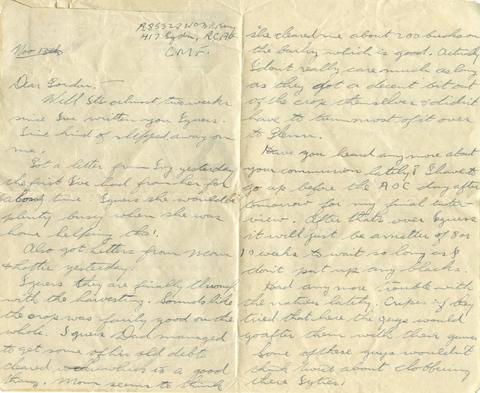 R85522 WO2 B Kay
417 Sqdn, RCAF
C.M.F.
Nov 13th
Dear Gordon,
Well its almost two weeks
since I've written you I guess.
Time kind of slipped away on
me.
Got a letter from Ivy yesterday
the first I've had from her for
a long time. I guess she would be
plenty busy when she was
home helping tho'.
Also got letters from Mom
& Lottie yesterday.
I guess they are finally through
with the harvesting. Sounds like
the crop was fairly good on the
whole. I guess Dad managed
to get some of his old debts
cleared which is a good
thing. Mom seems to think
she cleared me about 200 bucks on
the barley which is good. Actually
I don't really care much as long
as they got a decent bit out
of the crop themselves & didn't
have to turn most of it over
to
Have you heard any more about
your commission lately? I have to
go up before the AOC day after
tomorrow for my final inter-
view. After that's over I guess
it will just be a matter of 8 or
10 weeks to wait so long as I
don't put up any blacks.
Had any more trouble with
the natives lately. Cripes if they
tried that here the guys would
go after them with their guns
Some of these guys wouldn't
think twice about clobbering
these Eyties.